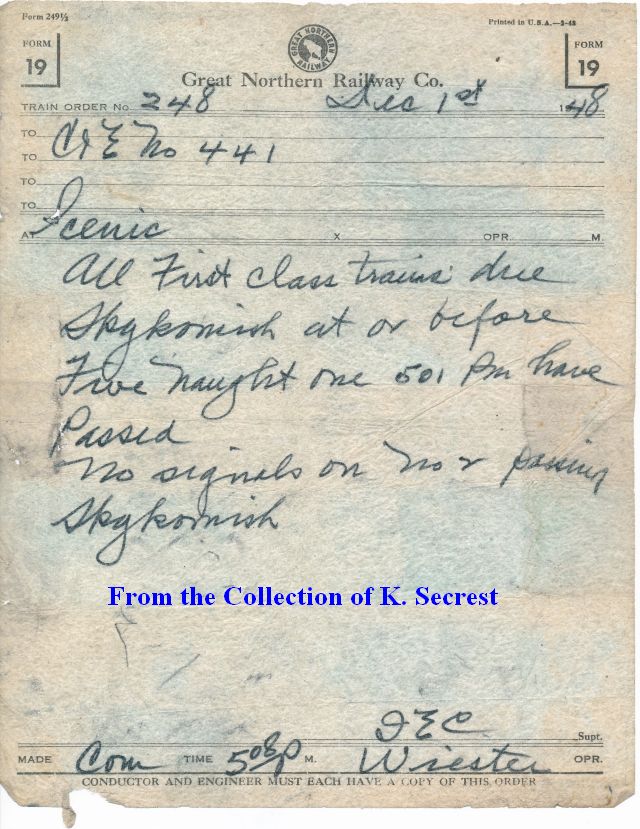 Form 249½
Printed in U.S.A.—3-48
FORM 19
GREAT NORTHERN RAILWAY
FORM 19
Great Northern Railway Co.
TRAIN ORDER No. 248 Dec 1st 1948
TO
TO C&E No 441
TO
TO
AT Scenic X OPR. M.
All First class trains due
Skykomish at or before
Five naught one 501 Pm have
Passed
No signals on No 2 passing
Skykomish
From the Collection of K. Secrest
Supt.
MADE Com TIME 508 P M. Wiester OPR.
CONDUCTOR AND ENGINEER MUST EACH HAVE A COPY OF THIS ORDER